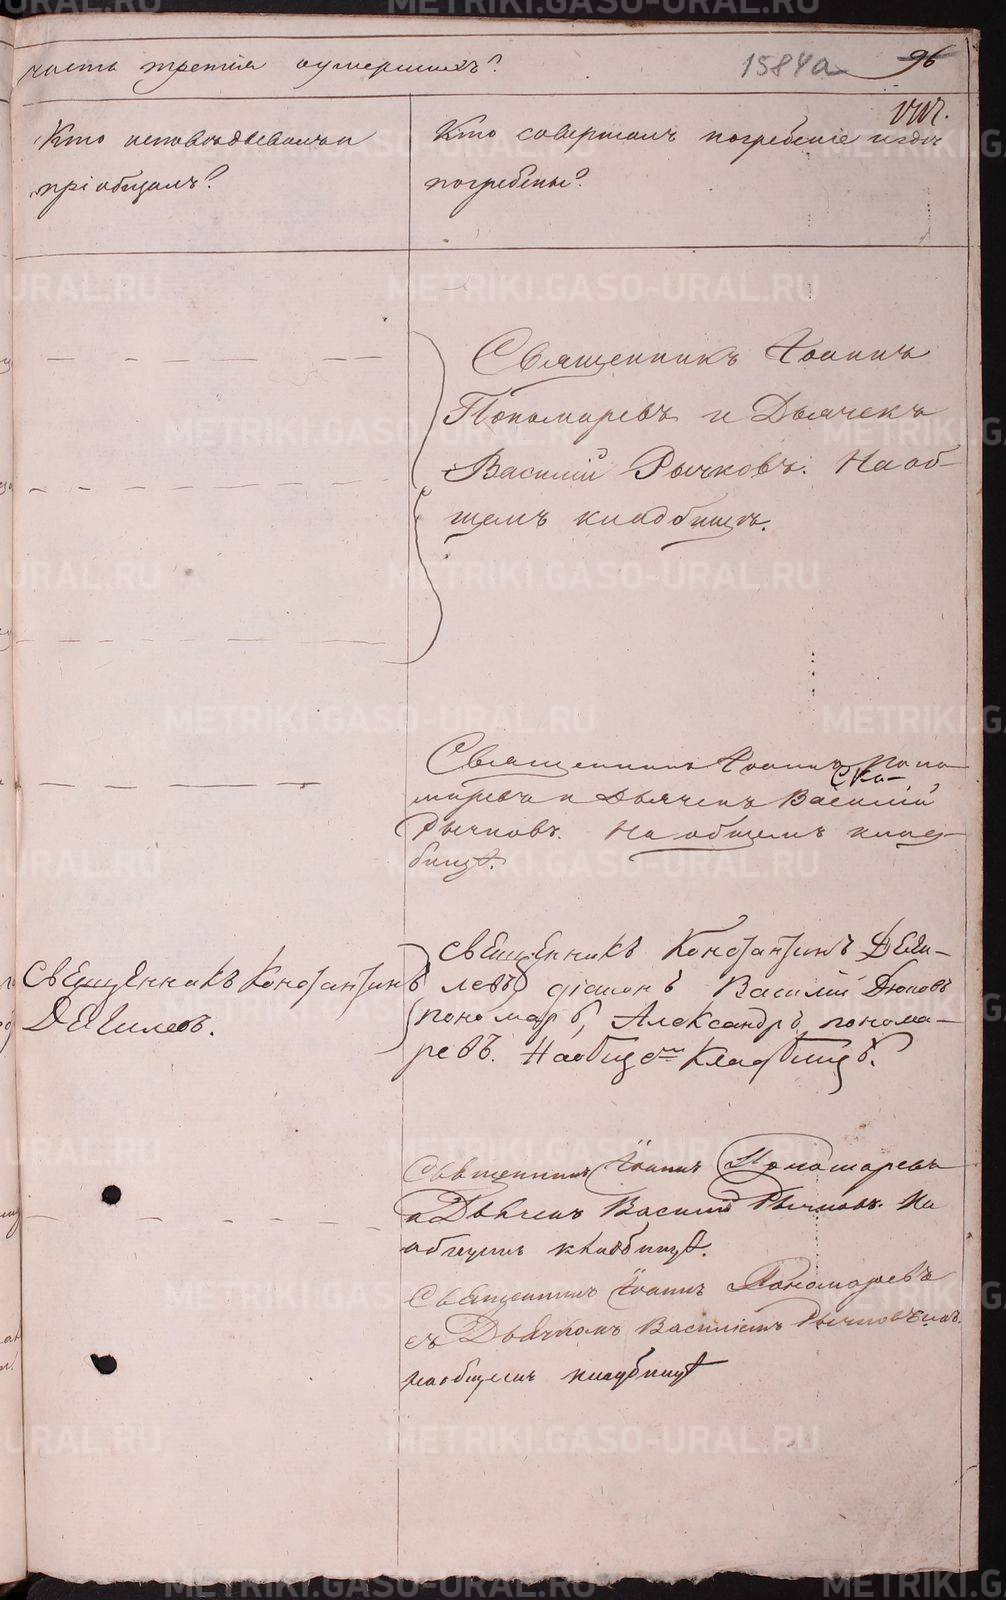 часть третія оумершихъ?
1584а
96
Кто исповѣдывалъ и
пріобщалъ?
Кто совершалъ погребеніе и гдѣ
погребены?
Священникъ Іоаннъ
Пономаревъ и Дьячекъ
Василій Рычковъ. На об-
щемъ кладбищѣ.
Священникъ Іоаннъ Поно-
маревъ и Дьячекъ Василій
Рычковъ. На общемъ клад-
бищѣ.
Священникъ Константинъ
священникъ Константинъ
левъ діаконъ Василій
пономарь, Александръ понома-
ревъ. На общемъ Кладбищѣ.
Священникъ Іоаннъ Пономаревъ
и Дьячекъ Василій Рычковъ. На
общемъ кладбищѣ.
Священникъ Іоаннъ Пономаревъ
съ Дьячкомъ Василіемъ Рычковымъ.
на общемъ кладбищѣ
METRIKI.GASO-URAL.RU